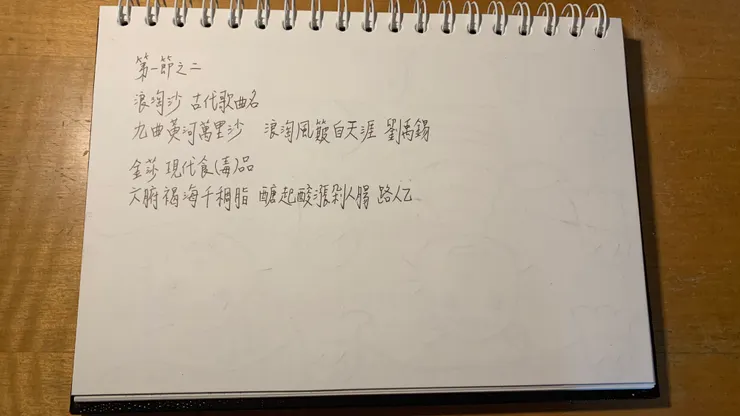 第一節之二
浪淘沙 古代歌曲名
九曲黃河萬里沙 浪淘風簸自天涯 劉禹錫
金莎 現代食(毒)品
六腑褐海千稠脂 醣起酸漲剁人腸 路人乙